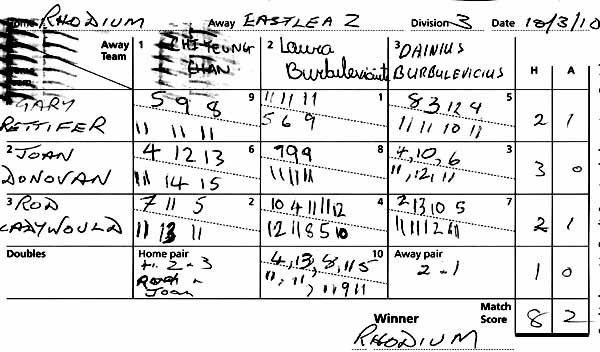 Home RHODIUM Away EASTLEA 2 Division 3 Date 10/3/10
Away Team 1 CHI YEUNG CHAN 2 Laura Burbuleviciute 3 DAINIUS BURBULEVICIUS H A
GARY PETTIFER
5 9 8 9 11 11 11 11 1 8 3 12 4 5
11 11 11 5 6 9 11 11 10 11 2 1
2 JOAN DONOVAN
4 12 13 6 7 9 9 8 4, 10, 6 3
11 14 15 11 11 11 11, 12, 11 3 0
3 ROD
7 11 5 2 10 4 11 11 12 4 2 13 10 5 7
11 13 11 12 11 8 5 10 11 11 12 11 2 1
Doubles Home pair 10 Away pair
2 - 3 4, 13, 8, 11 5 2 - 1 1 0
Joan 11, 11, 11 9 11
Winner Match Score 8 2
RHODIUM